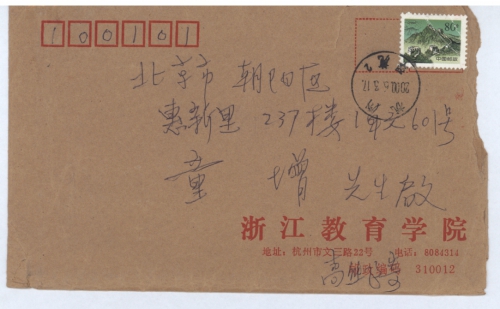 100101
80分
中国邮政
2000.6.3.17
北京市 朝阳区
惠新里 237楼 1单元601号
童 增 先生启
浙江教育学院
地址：杭州市文三路32号 电话：8084314
邮政编码 310012